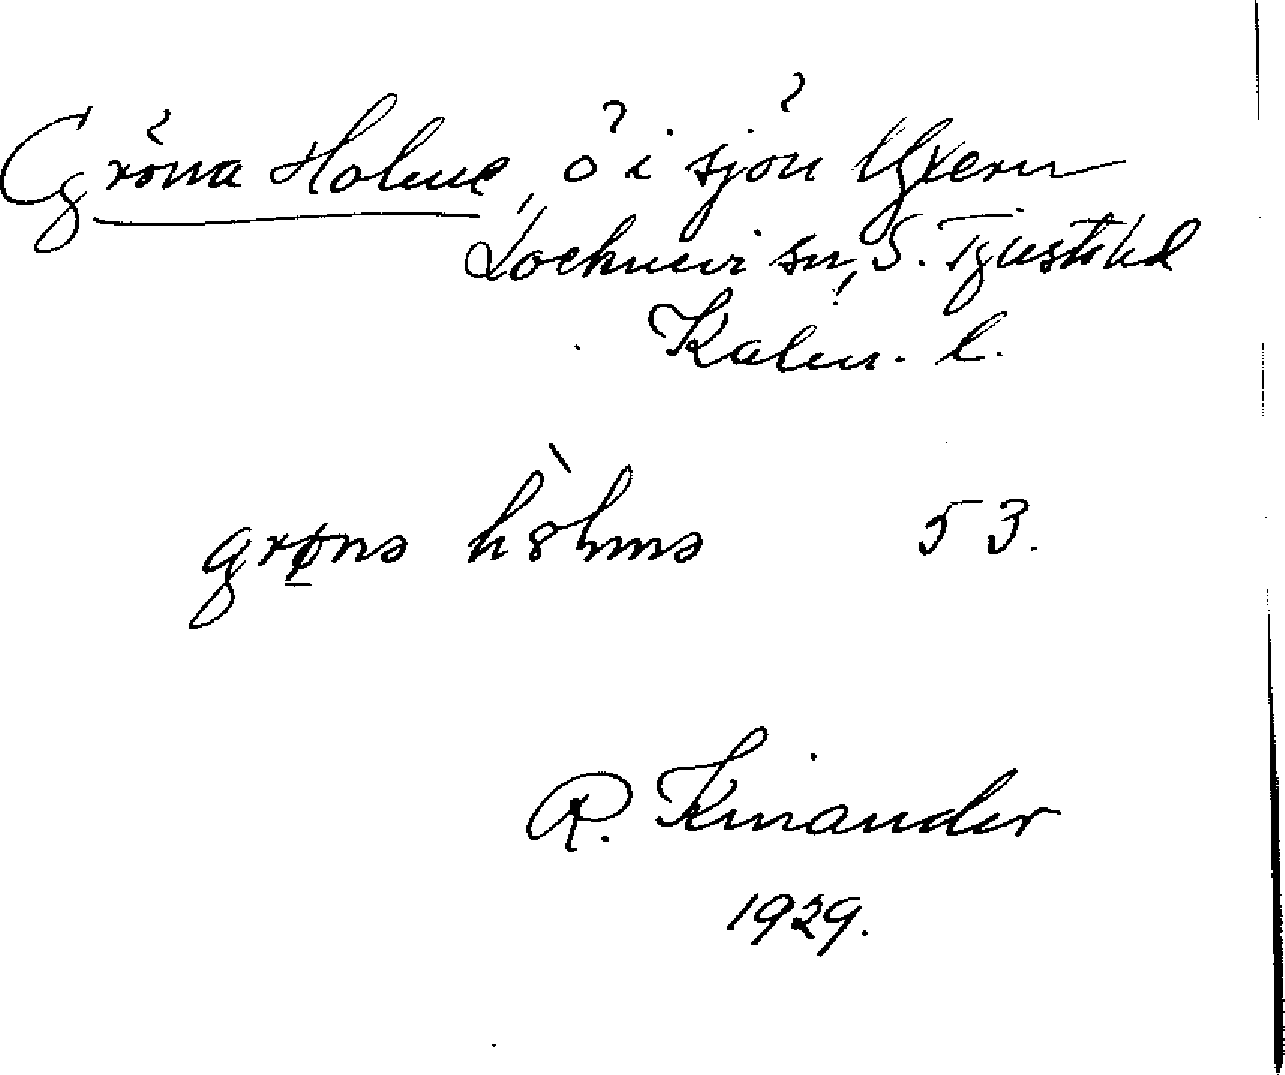 Gröna Holme, ö i sjön Yxern
Locknevi sn, S. Tjusts hd
Kalm. l.
grønə hòlmə 53.
R. Kinander
1929.